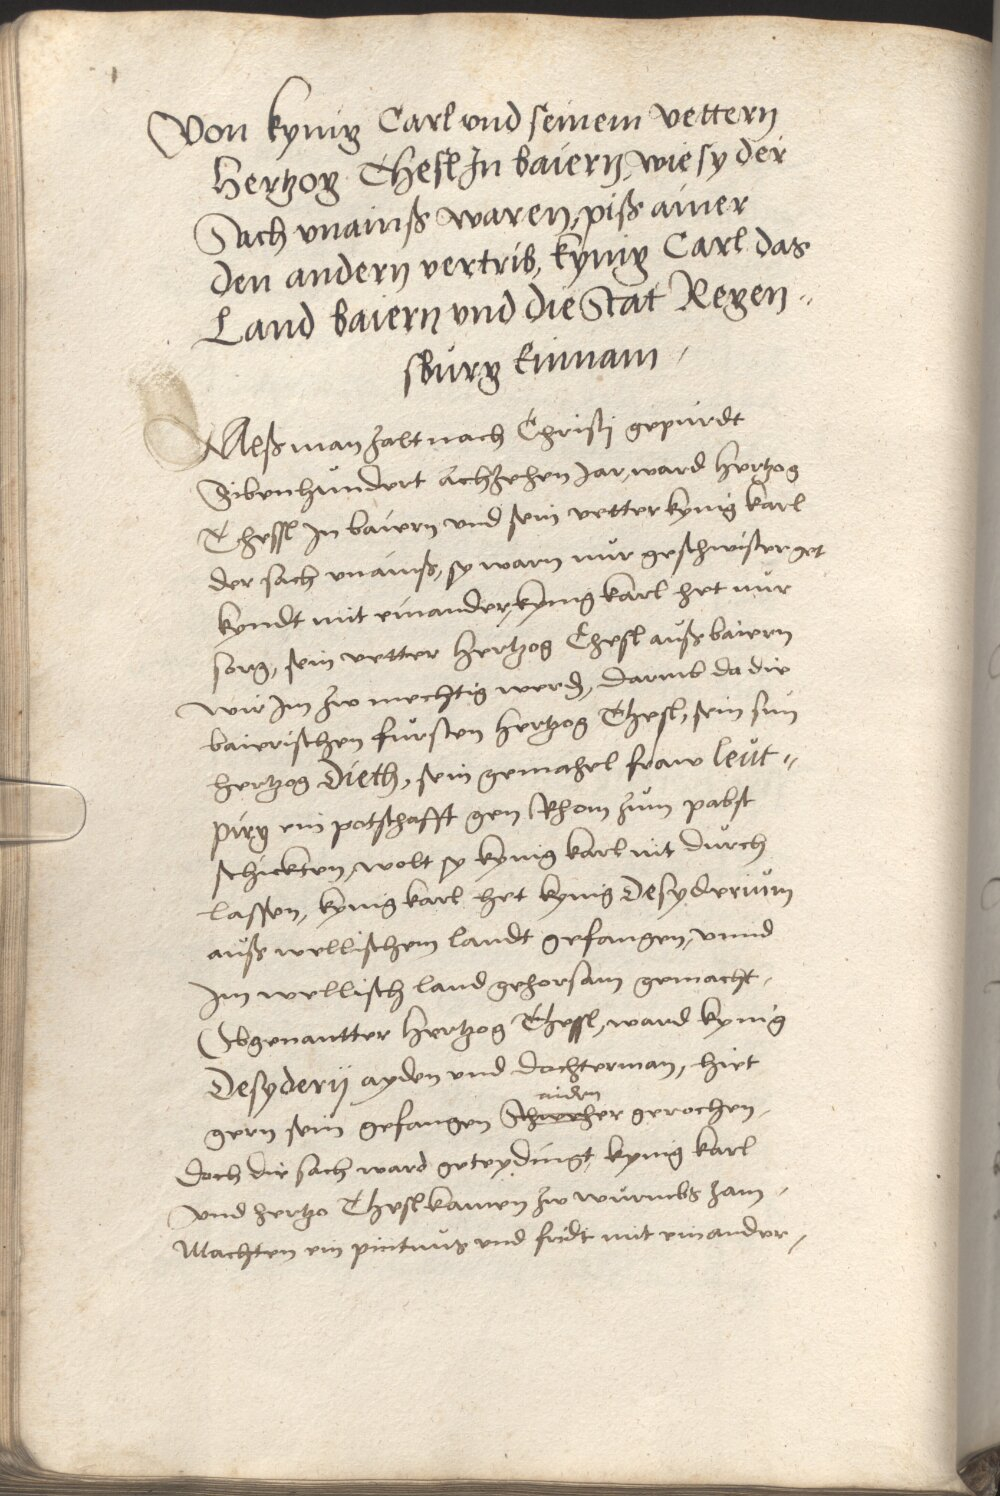 Von kynig Carl vnd seinem vettern
Hertzog Thesl In baiern, wie sy der
Sach vnainß waren, piß ainer
den andern vertrib, kynig Carl das
Land baiern vnd die Stat Regen„
sburg Einnam,
Alß man zalt nach Christj gepurdt
Sibenhundert achzehen Jar, ward hertzog
Thessl In baiern vnd sein vetter kynig karl
der sach vnainß, sy warn nur geschwisterget
kyndt mit einander, kynig karl het nur
sorg, sein vetter hertzog Thesl auß baiern
wir Im zw mechtig werd, darumb da die
baierischen fursten hertzog Thesl, sein sun
hertzog Dieth, sein gemahel fraw Leut„
pirg ein potschafft gen Rhom zum pabst
schickten, wolt sy kynig karl nit durch
lassen, kynig karl het kynig Desyderium
auß wellischem landt gefangen, vnnd
Im wellisch land gehorsam gemacht,
Obgenantter hertzog Thessl, ward kynig
Desyderij ayden vnd dochterman, hiet
aiden
gern sein gefangen Schweher gerochen,
doch die sach ward geteydingt, kynig karl
vnd hertzo Thesl kamen zw wurmbs zam,
Machten ein pintnus vnd fridt mit einander,